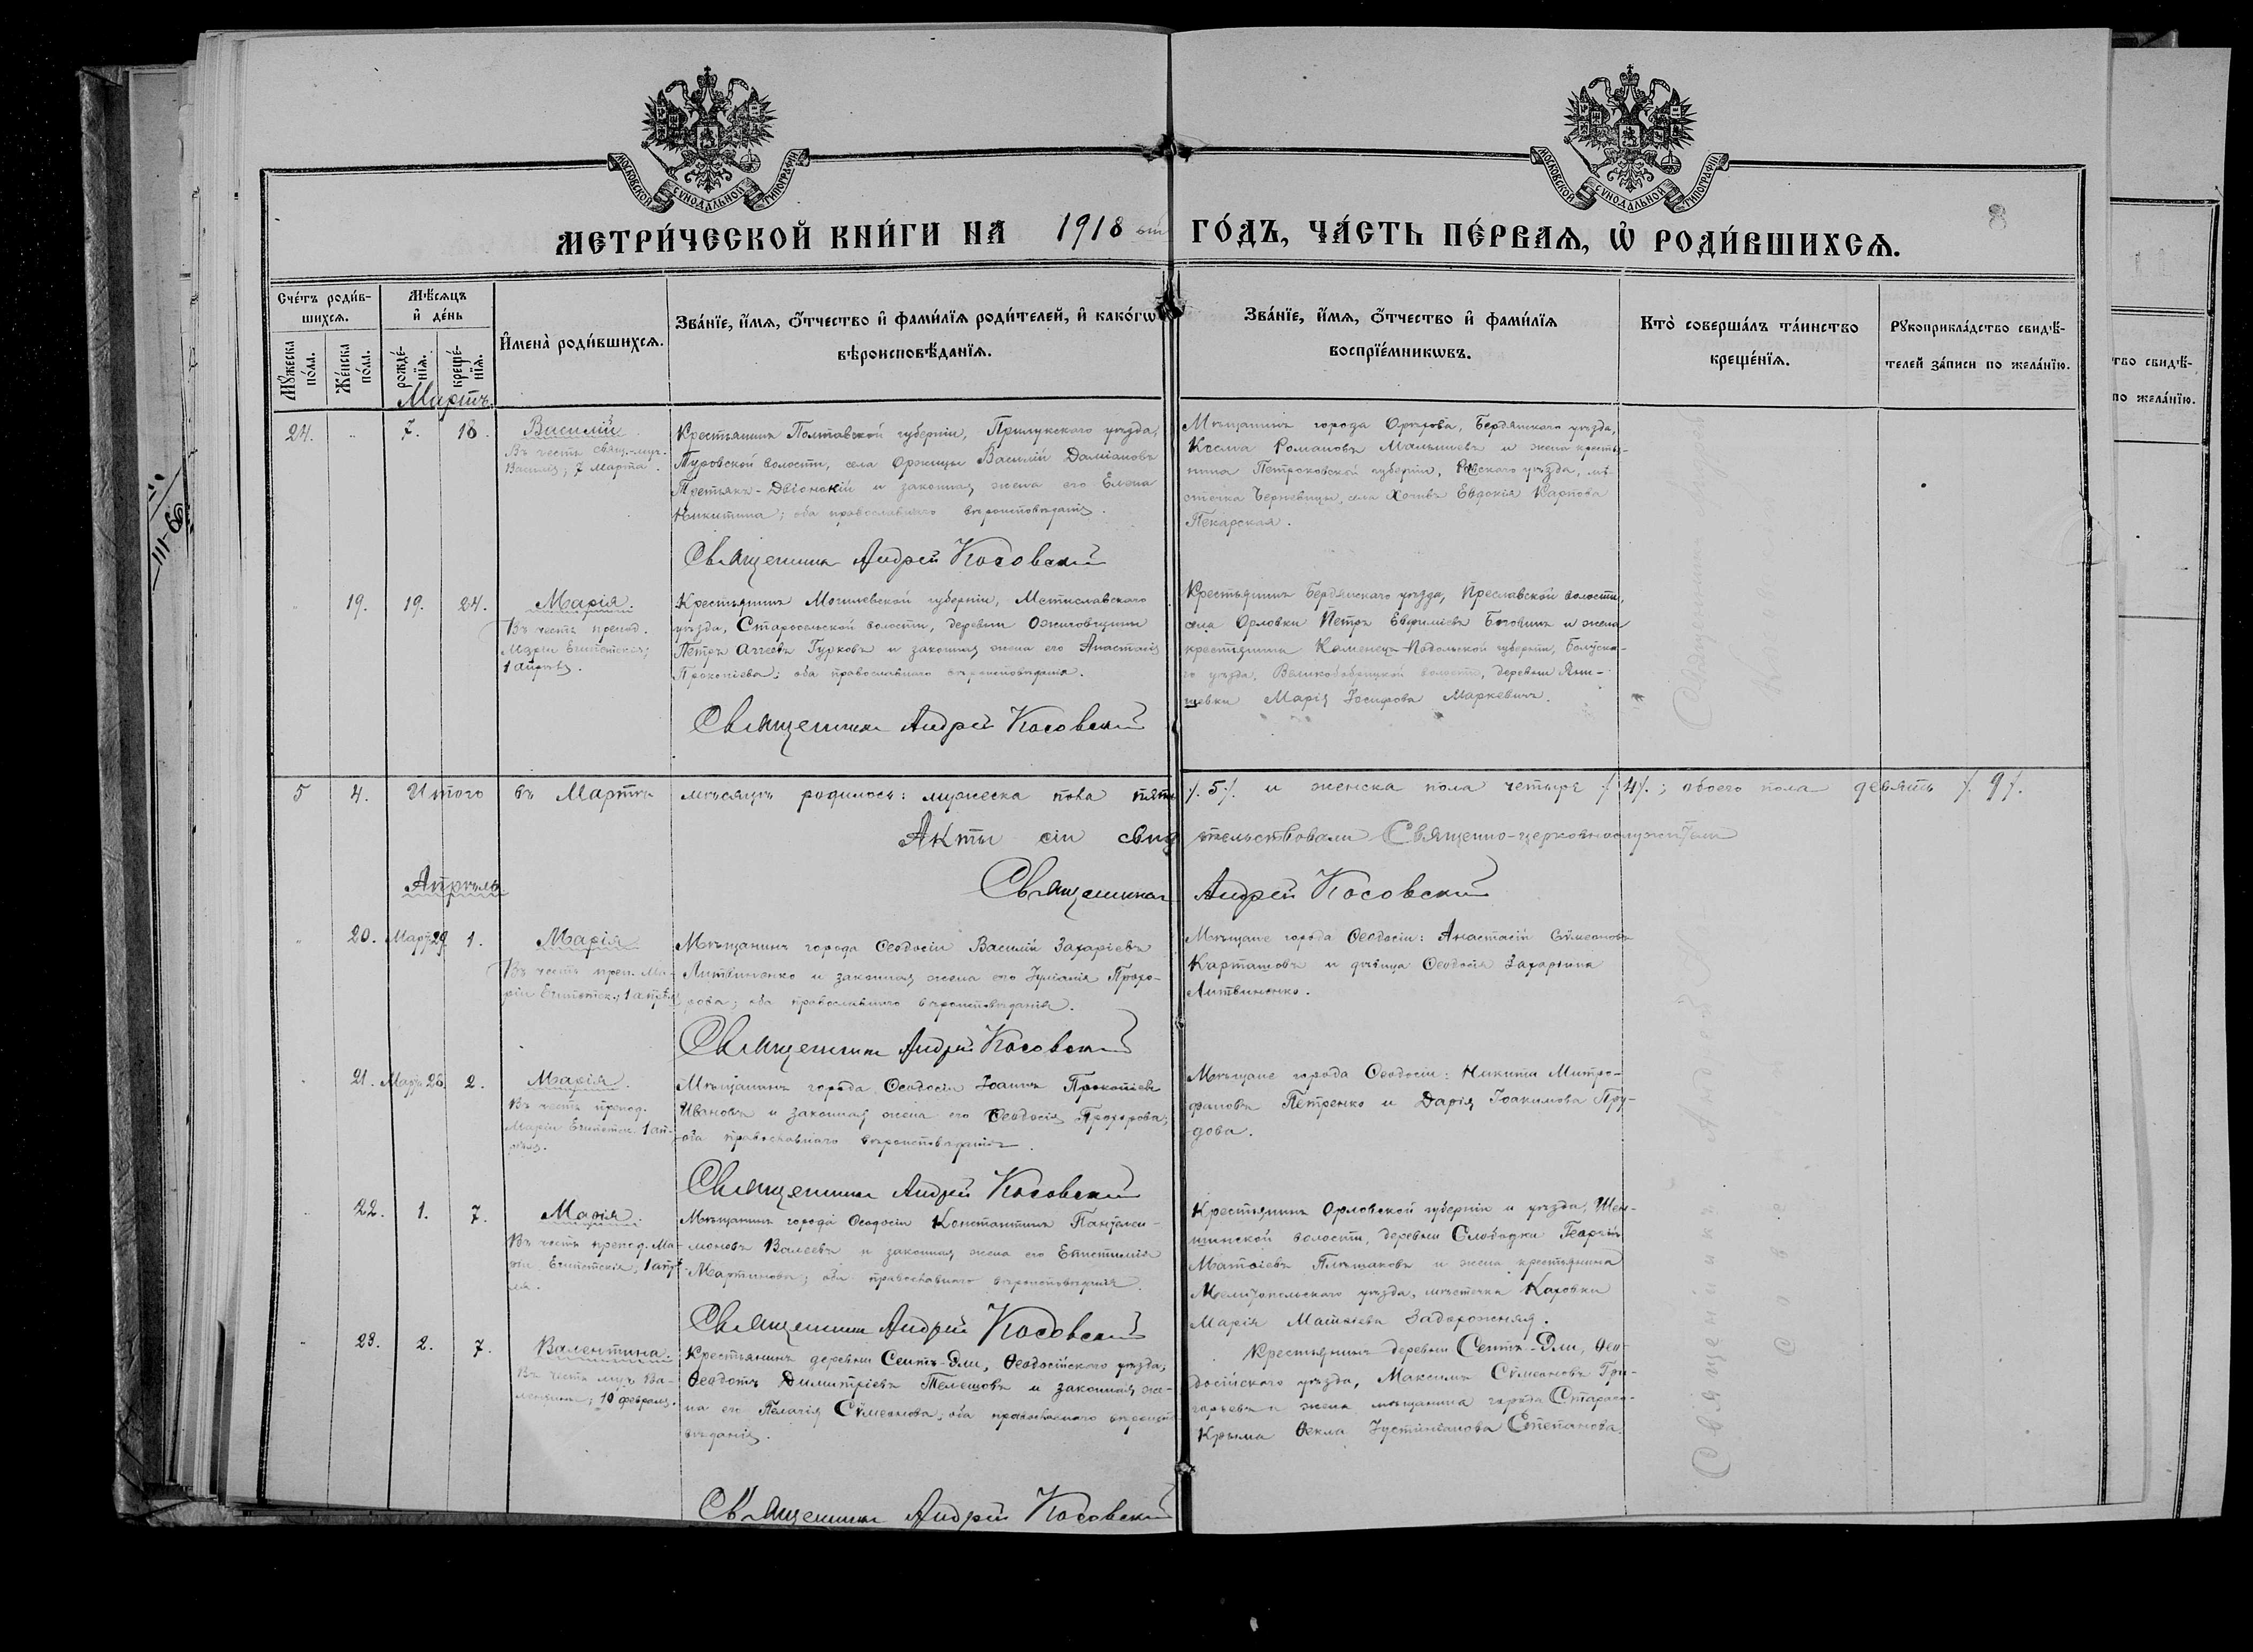 МОСКОВСКОЙ СѴНОДАЛЬНОЙ ТИПОГРАФІИ
МОСКОВСКОЙ СѴНОДАЛЬНОЙ ТИПОГРАФІИ
МЕТРИ́ЧЕСКОЙ КНИ́ГИ НА 1918 ый ГО́ДЪ, ЧА́СТЬ ПЕ́РВАѦ, Ѡ҆ РОДИ́ВШИХСѦ.
8
Сче́тъ роди́в-
шихсѧ.
Мꙋ́жеска по́ла.
Же́нска по́ла.
Мѣ́сѧцъ
и҆ де́нь
рожде́нїѧ.
креще́нїѧ.
И҆мена̀ роди́вшихсѧ.
Зва́нїе, и҆́мѧ, ѻ҆́тчество и҆ фами́лїѧ роди́телей, и҆ како́гѡ
вѣроисповѣ́данїѧ.
Зва́нїе, и҆́мѧ, ѻ҆́тчество и҆ фами́лїѧ
воспрїе́мникѡвъ.
Кто̀ соверша́лъ та́инство
креще́нїѧ.
Рꙋкоприкла́дство свидѣ́-
телей за́писи по жела́нїю.
тво свидѣ́-
по жела́нїю.
Мартъ.
24. 7. 18. Василій
Въ честь свящ.-муч.
Василія, 7 марта.
Крестьянинъ Полтавской губерніи, Прилукского уѣзда,
Туровской волости, села Оржицы Василій Даміановъ
Третьякъ- и законная жена его Елена
Никитина; оба православнаго вѣроисповѣданія.
Священникъ Андрей Косовскій
Мѣщанинъ города Орѣхова, Бердянскаго уѣзда,
Косма Романовъ Малышевъ и жена крестья-
нина Петроковской губерніи, уѣзда, мѣ-
стечка села Евдокія Карпова
Пекарская.
19. 19. 24. Марія.
Въ честь препод.
Маріи Египетскія;
1 апрѣля.
Крестьянинъ Могилевской губерніи, Мстиславскаго
уѣзда, Старосельской волости, деревни
Петръ Аггеевъ Гурковъ и законная жена его Анастасія
Прокопіева; оба православнаго вѣроисповѣданія.
Священникъ Андрей Косовскій
Крестьянинъ Бердянскаго уѣзда, Преславской волости,
села Орловки Петръ Евфиміевъ и жена
крестьянина Каменецъ-Подольской губерніи,
уѣзда, волости, деревни Яни-
шевки Марія Іосифова Маркевичъ.
5 4. Итого въ Мартѣ мѣсяцѣ родилось: мужеска пола пять /.5/. и женска пола четыре /.4/.; обоего пола девять /.9/.
Акты сіи свидѣтельствовали Священно-церковнослужители
Священникъ Андрей Косовскій
Апрѣль
20. Март. 29 1. Марія
Въ честь преп. Ма-
ріи Египетск.; 1 апрѣля
Мѣщанинъ города Ѳеодосіи Василій Захаріевъ
Литвиненко и законная жена его Іуліанія Прохо-
рова; оба православнаго вѣроисповѣданія.
Священникъ Андрей Косовскій
Мѣщане города Ѳеодосіи: Анастасій Сѵмеоновъ
Карташовъ и дѣвица Ѳеодосія Захаріина
Литвиненко.
21. Март. 28 2. Марія.
Въ честь препод.
Маріи Египетск. 1 ап-
рѣля.
Мѣщанинъ города Ѳеодосіи Іоаннъ Прокопіевъ
Ивановъ и законная жена его Ѳеодосія Прохорова;
оба православнаго вѣроисповѣданія.
Священникъ Андрей Косовскій
Мѣщане города Ѳеодосіи: Никита Митро-
фановъ Петренко и Дарія Іоакимова Пру-
дова.
22. 1. 7. Марія.
Въ честь препод. Ма-
ріи Египетскія, 1 апр-
ѣля.
Мѣщанинъ города Ѳеодосіи Константинъ Пантелеи-
моновъ Валеевъ и законная жена его Епистимія
Мартинова; оба православнаго вѣроисповѣданія.
Священникъ Андрей Косовскій
Крестьянинъ Орловской губерніи и уѣзда,
волости, деревни Слободки Георгій
Матѳіевъ и жена крестьянина
Мелитопольскаго уѣзда, мѣстечка Каховки
Марія Задорожняя.
23. 2. 7. Валентина.
Въ честь муч. Ва-
лентины; 10 февраля.
Крестьянинъ деревни Сеитъ-Эли, Ѳеодосійскаго уѣзда,
Ѳеодотъ Димитріевъ Телешовъ и законная же-
на его Пелагія Сѵмеонова; оба православнаго вѣроиспо-
вѣданія.
Священникъ Андрей Косовскій
Крестьянинъ деревни Сеитъ-Эли, Ѳео-
досійскаго уѣзда, Максимъ Сѵмеоновъ Гри-
горьевъ и жена мѣщанина города Стараго-
Крыма Ѳекла Іустиніанова Степанова.
Священникъ